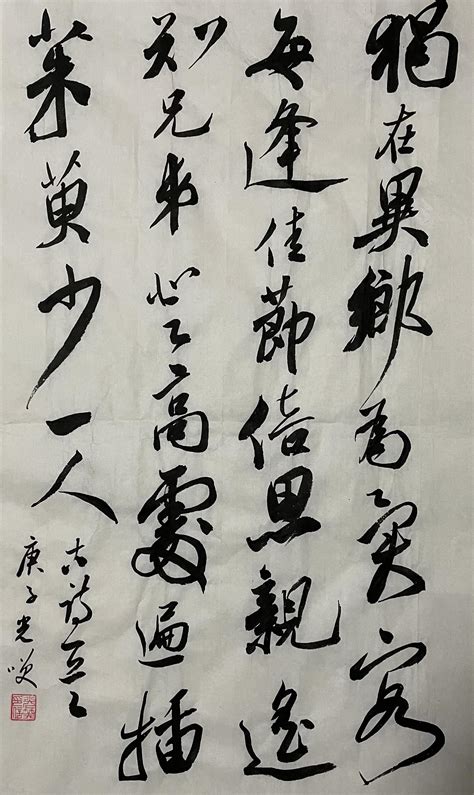 獨在異鄉為異客
每逢佳節倍思親遙
知兄弟登高處遍插
茱萸少一人
古詩一首
庚子光